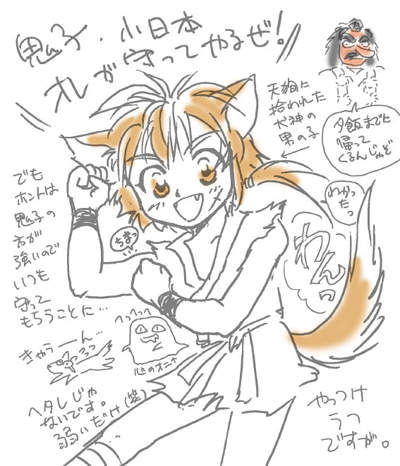 鬼子・小日本
オレが守ってやるぜ!
天狗に
拾われた
犬神の
男の子
夕飯までに
帰って
くるんじゃぞ
わかったっ
わんっ
でも
ホントは
鬼子の
方が
強いので
いつも
守って
もらうことに…
ちまっ
きゃうーん…
へっへっへっ
心のオニ↑
ヘタレじゃ
ないです。
弱いだけ(笑)
やっつけ
うつ
ですが。